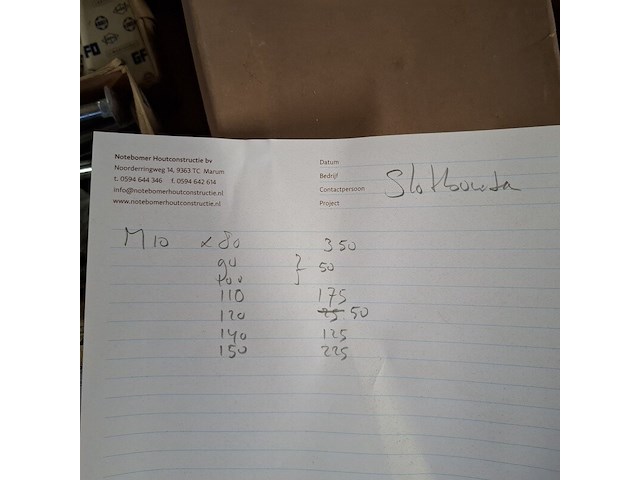 FO
GF
Notebomer Houtconstructie bv
Noorderringweg 14, 9363 TC Marum
t. 0594 644 346 f. 0594 642 614
info@notebomerhoutconstructie.nl
www.notebomerhoutconstructie.nl
Datum
Bedrijf
Contactpersoon
Project
Slotbouten
M10 x 80 350
90
100 } 50
110 175
120 25 50
140 125
150 225